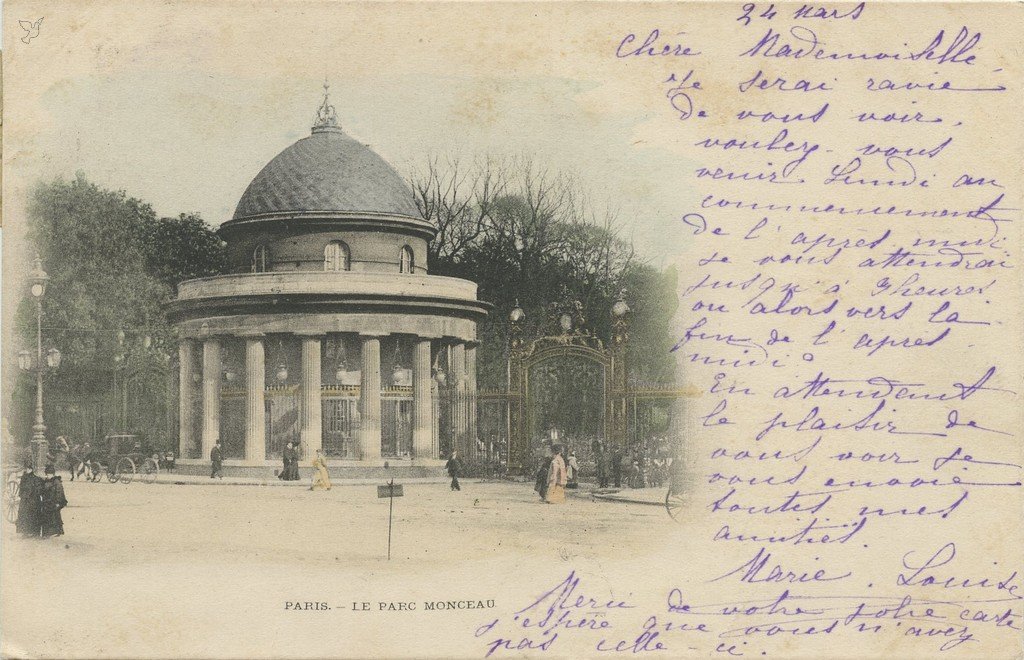 24 Mars
Chère Mademoiselle,
Je serai ravie
de vous voir.
voulez-vous
venir Lundi au
commencement
de l'après midi
je vous attendrai
jusqu'à 3 heures
ou alors vers la
fin de l'après
midi?
En attendant
le plaisir de
vous voir je
vous envoie
toutes mes
amitiés.
Marie. Louise
Merci de votre jolie carte
j'espère que vous n'avez
pas celle-ci.
PARIS. - LE PARC MONCEAU